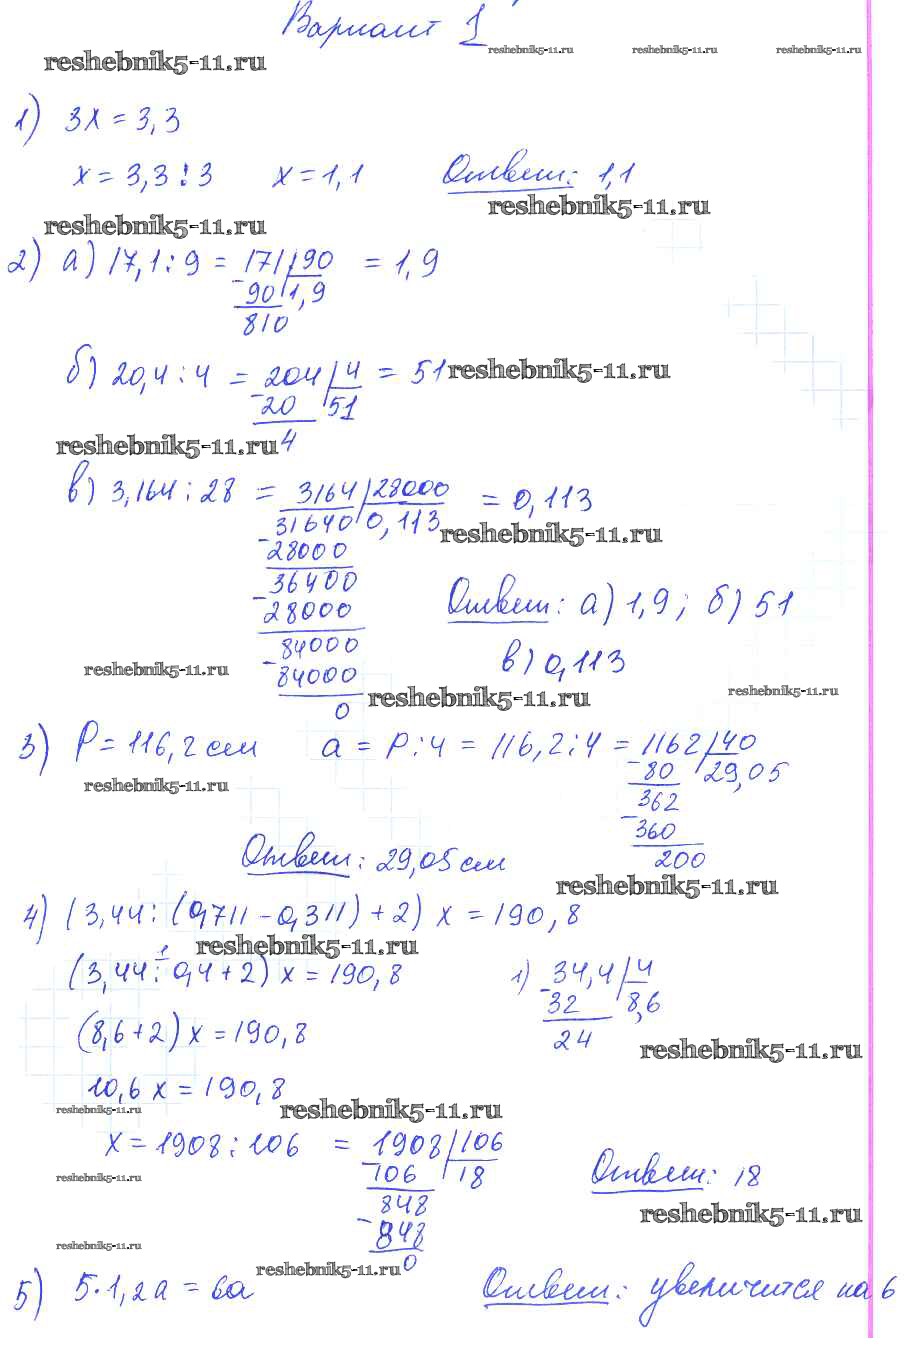 Вариант 1
reshebnik5-11.ru reshebnik5-11.ru reshebnik5-11.ru reshebnik5-11.ru
1) 3x = 3,3
x = 3,3 : 3 x = 1,1 Ответ: 1,1
reshebnik5-11.ru
reshebnik5-11.ru
2) а) 17,1 : 9 = 171 | 90 = 1,9
- 90 | 1,9
810
б) 20,4 : 4 = 204 | 4 = 51 reshebnik5-11.ru
- 20 | 51
reshebnik5-11.ru 4
в) 3,164 : 28 = 3164 | 28000 = 0,113
31640 | 0,113 reshebnik5-11.ru
- 28000
36400
- 28000 Ответ: а) 1,9; б) 51
84000 в) 0,113
reshebnik5-11.ru - 84000
0 reshebnik5-11.ru reshebnik5-11.ru
3) P = 116,2 см a = P : 4 = 116,2 : 4 = 1162 | 40
reshebnik5-11.ru - 80 | 29,05
362
- 360
Ответ: 29,05 см 200
reshebnik5-11.ru
4) (3,44 : (0,711 - 0,311) + 2) x = 190,8
reshebnik5-11.ru
(3,44 :¹ 0,4 + 2) x = 190,8 1) 34,4 | 4
- 32 | 8,6
(8,6 + 2) x = 190,8 24
reshebnik5-11.ru
10,6 x = 190,8
reshebnik5-11.ru reshebnik5-11.ru
x = 1908 : 106 = 1908 | 106
reshebnik5-11.ru - 106 | 18 Ответ: 18
848 reshebnik5-11.ru
- 848
reshebnik5-11.ru
reshebnik5-11.ru 0
5) 5·1,2a = 6a Ответ: увеличится на 6